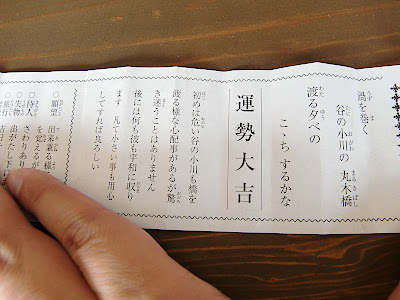 渦を巻く
谷の小川の 丸木橋
渡る夕べの
こゝちするかな
運勢大吉
初めは危い谷の小川も橋を
渡る様な心配事があるが驚
き迷うことはありません
後には何も彼も平和に収り
ます 凡て小さい事も用心
してすれば良ろしい
○願望 出来兼る様
を覚えるが
○待人 さわりあり
○失物 出がたし下に
○旅行